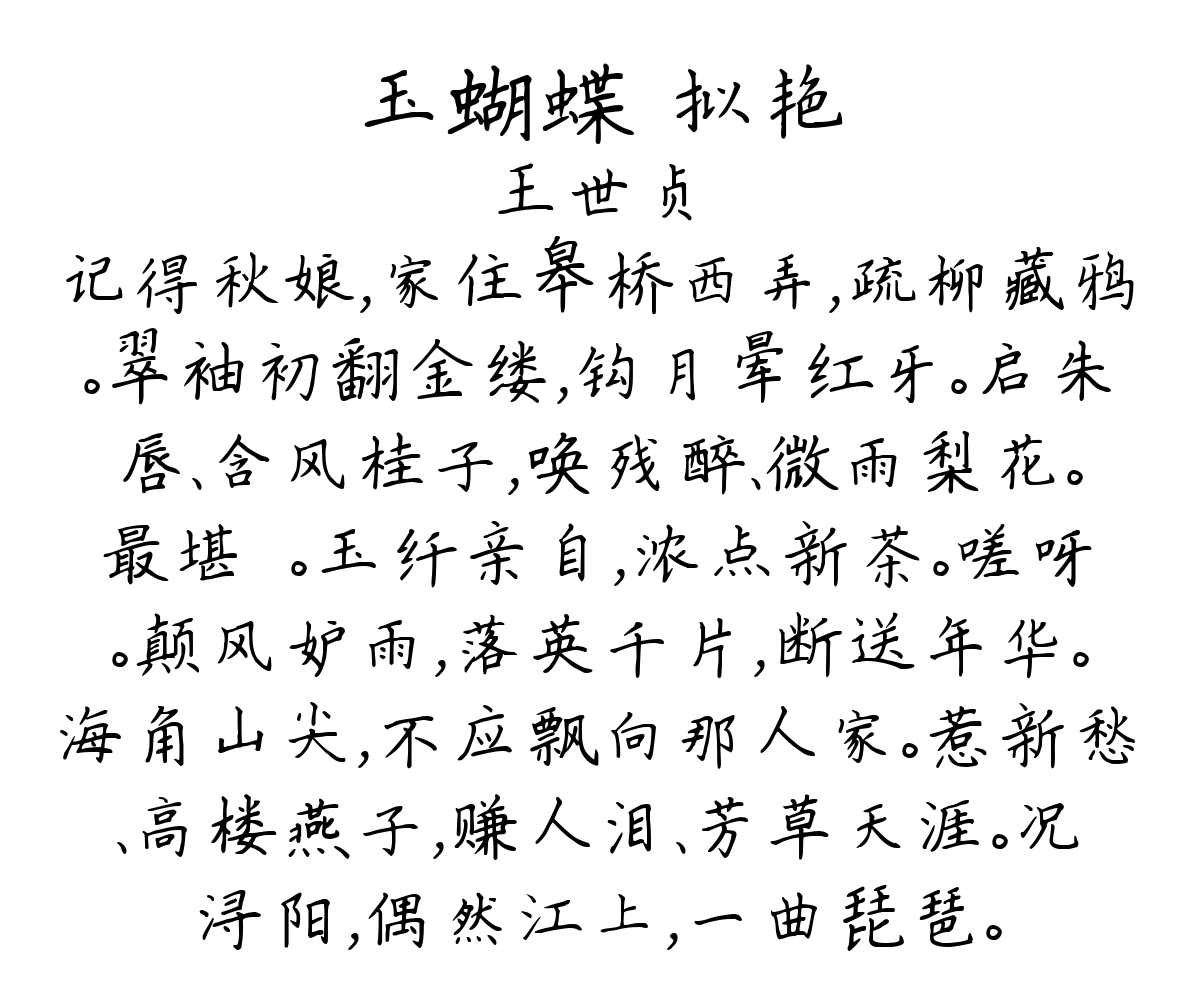 玉蝴蝶 拟艳
王世贞
记得秋娘,家住皋桥西弄,疏柳藏鸦
。翠袖初翻金缕,钩月晕红牙。启朱
唇、含风桂子,唤残醉、微雨梨花。
最堪 。玉纤亲自,浓点新茶。嗟呀
。颠风妒雨,落英千片,断送年华。
海角山尖,不应飘向那人家。惹新愁
、高楼燕子,赚人泪、芳草天涯。况
浔阳,偶然江上,一曲琵琶。